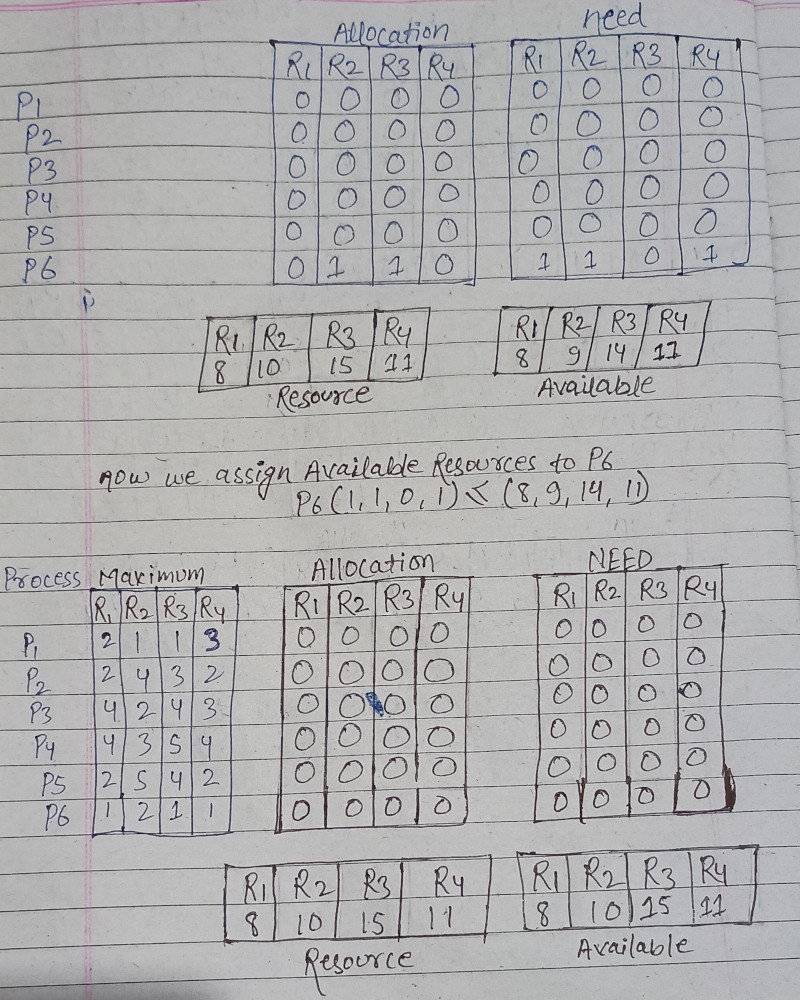 Allocation need
R1 R2 R3 R4 R1 R2 R3 R4
P1 0 0 0 0 0 0 0 0
P2 0 0 0 0 0 0 0 0
P3 0 0 0 0 0 0 0 0
P4 0 0 0 0 0 0 0 0
P5 0 0 0 0 0 0 0 0
P6 0 1 1 0 1 1 0 1
R1 R2 R3 R4 R1 R2 R3 R4
8 10 15 11 8 9 14 11
Resource Available
now we assign Available Resources to P6
P6 (1, 1, 0, 1) < (8, 9, 14, 11)
Process Maximum Allocation NEED
R1 R2 R3 R4 R1 R2 R3 R4 R1 R2 R3 R4
P1 2 1 1 3 0 0 0 0 0 0 0 0
P2 2 4 3 2 0 0 0 0 0 0 0 0
P3 4 2 4 3 0 0 0 0 0 0 0 0
P4 4 3 5 4 0 0 0 0 0 0 0 0
P5 2 5 4 2 0 0 0 0 0 0 0 0
P6 1 2 1 1 0 0 0 0 0 0 0 0
R1 R2 R3 R4 R1 R2 R3 R4
8 10 15 11 8 10 15 11
Resource Available